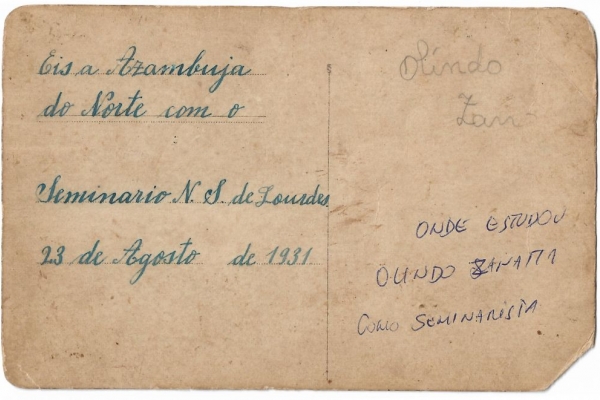 Eis a Azambuja
do Norte com o
Seminario N. S. de Lourdes
23 de Agosto de 1931
Olindo
Zan
ONDE ESTUDOU
OLINDO ZANATTA
COMO SEMINARISTA